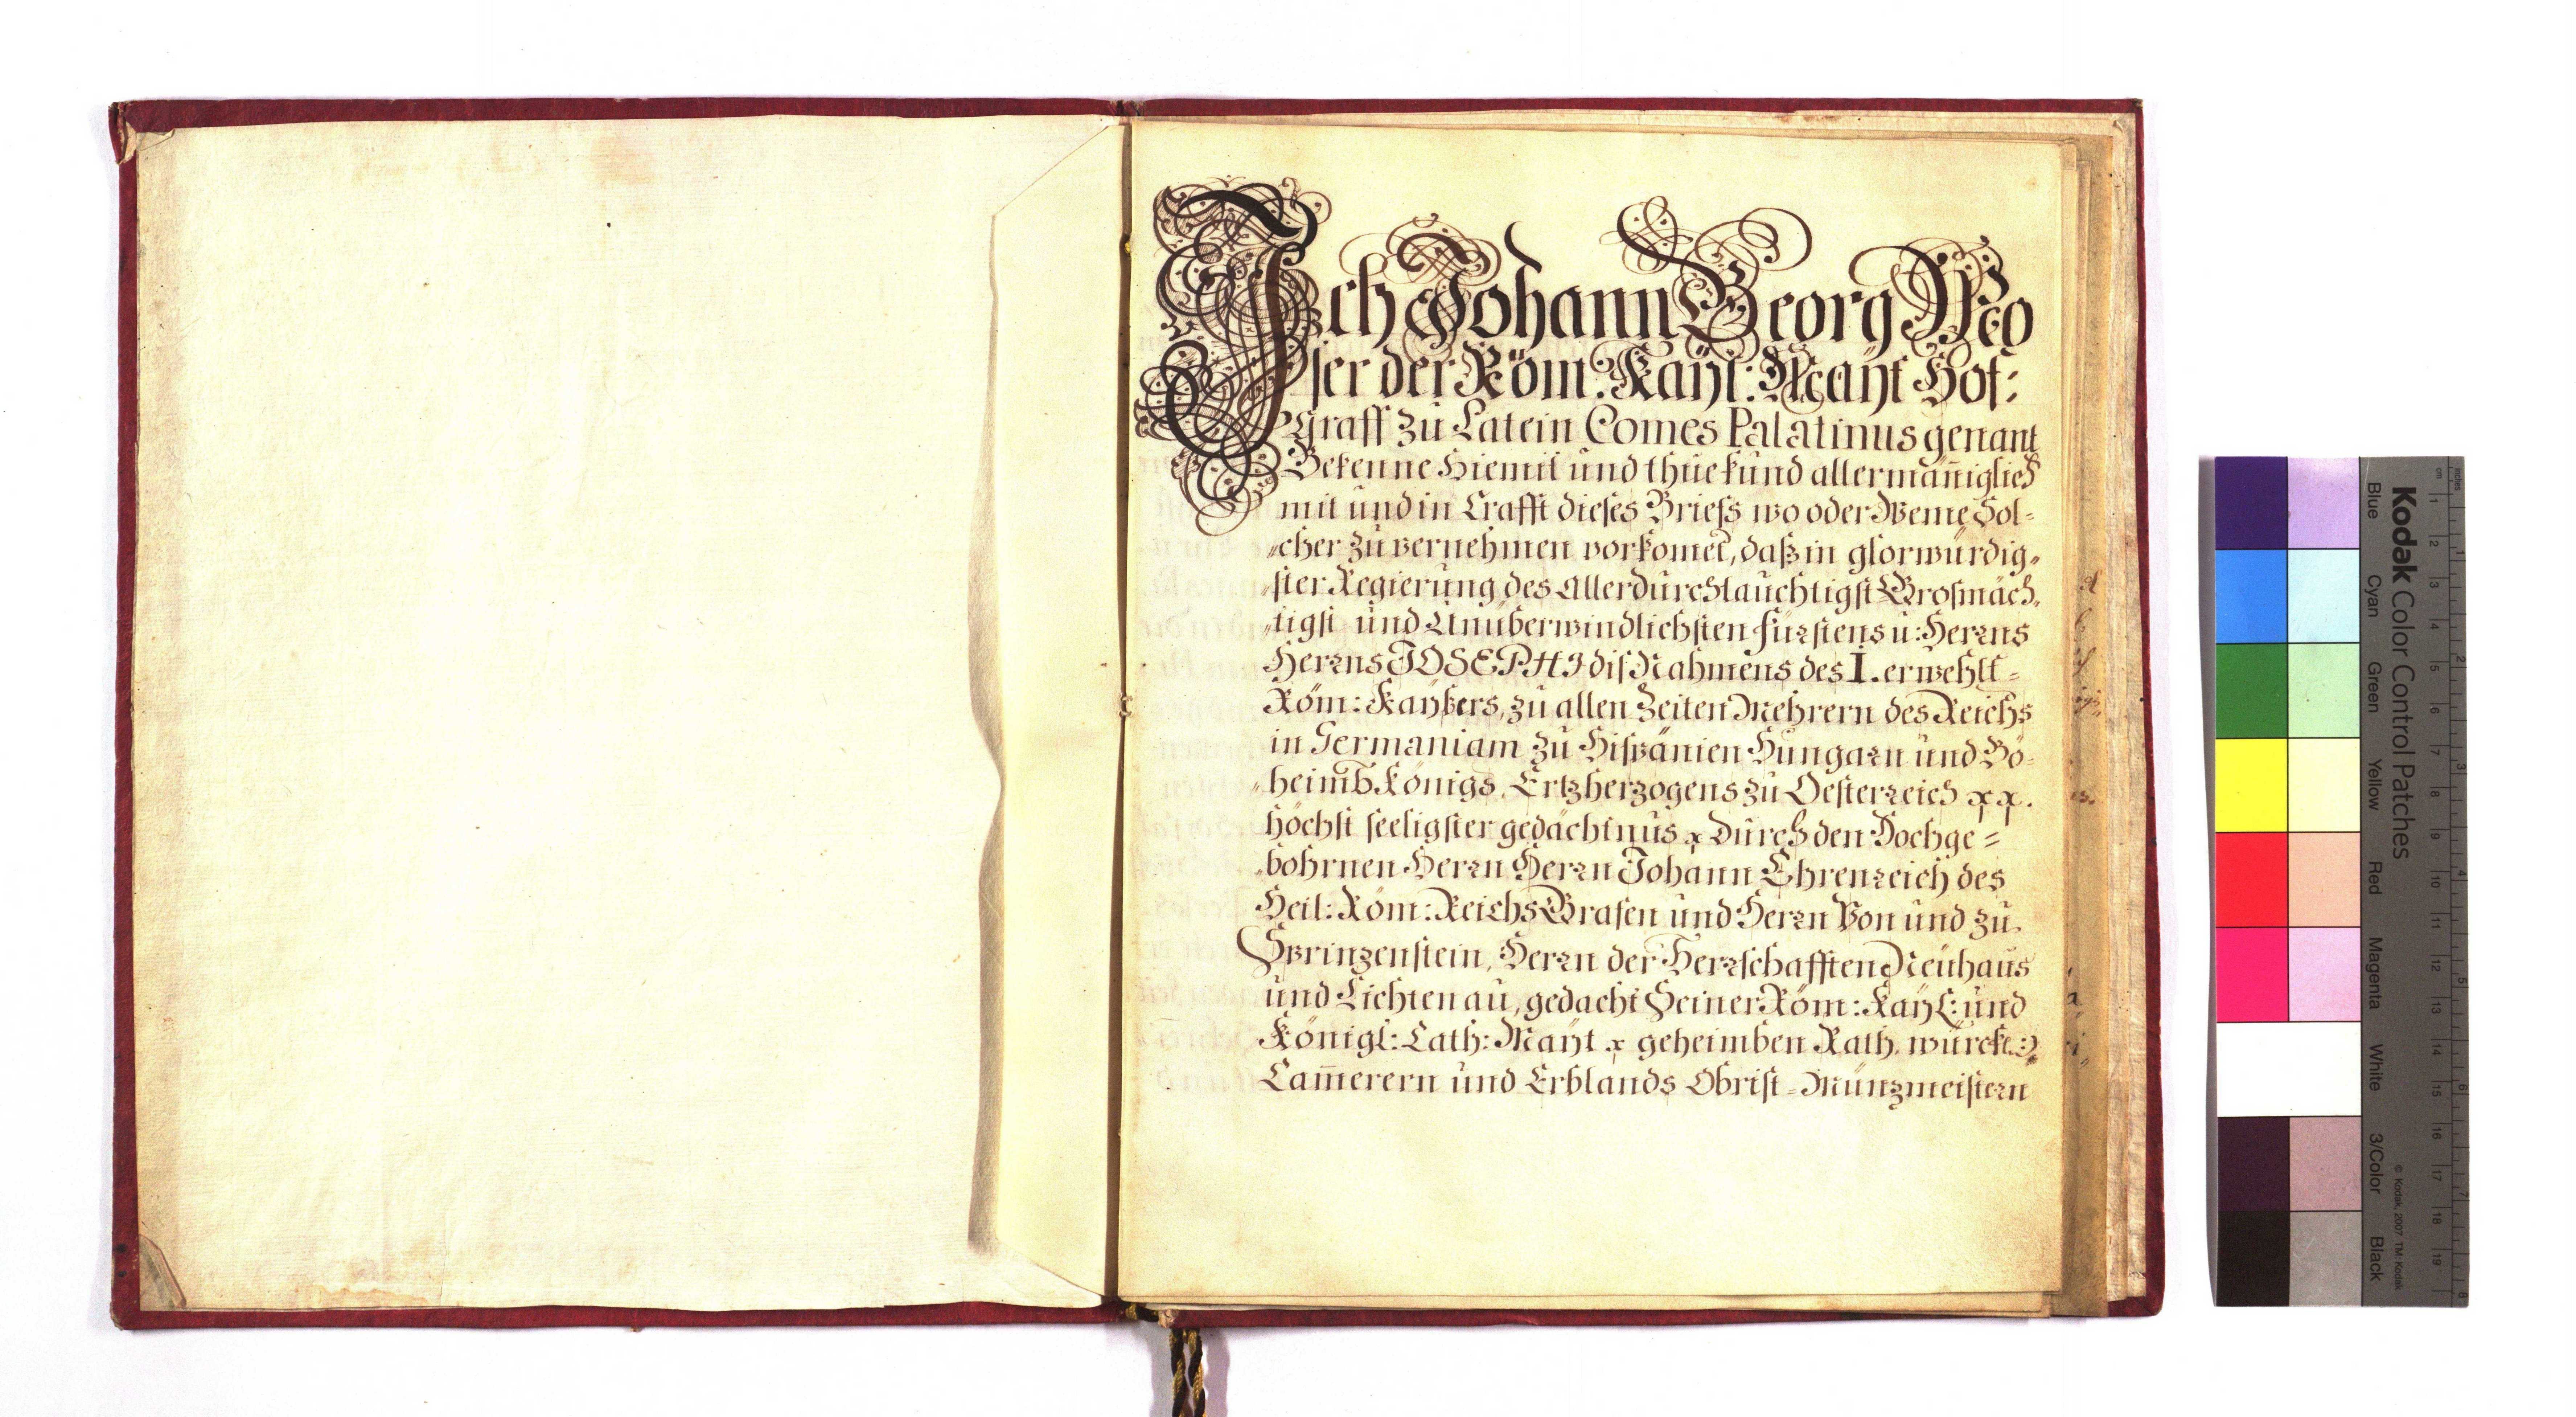 Ich Johann Georg Mo
ser der Röm: Kaÿl: Maÿt Hof:
Graff zu Latein Comes Palatinus genant
Bekenne hiemit und thue kund allermäñiglich
mit und in Crafft dieses Briefs wo oder Weme Sol=
„cher zu vernehmen vorkomet, daß in glorwürdig„
„ster Regierung des Allerdurchlauchtigst Grosmäch„
„tigst und Unüberwindlichsten fürstens u: Herrns
Herrns JOSEPHI dis Nahmens des I. erwehlt=
Röm: Kaÿsers, zu allen Zeiten Mehrern des Reichs
in Germaniam zu Hispänien Hungarn und Bö=
„heimb Königs, Ertzherzogens zu Oesterreich xx.
höchst seeligster gedächtnus x durch den Hochge=
„bohrnen Herrn Herrn Johann Ehrenreich des
Heil: Röm: Reichs Grafen und Herrn Von und zu
Sprinzenstein, Herrn der Herrschafften Neuhaus
und Lichtenau, gedacht Seiner Röm: Kaÿl: und
Königl: Cath: Maÿt x geheimben Rath, würckl:
Cam̃erern und Erblands Obrist=Münzmeistern
Kodak Color Control Patches
Blue Cyan Green Yellow Red Magenta White 3/Color Black
© Kodak, 2007 TM: Kodak
inches 1 2 3 4 5 6 7 8
cm 1 2 3 4 5 6 7 8 9 10 11 12 13 14 15 16 17 18 19